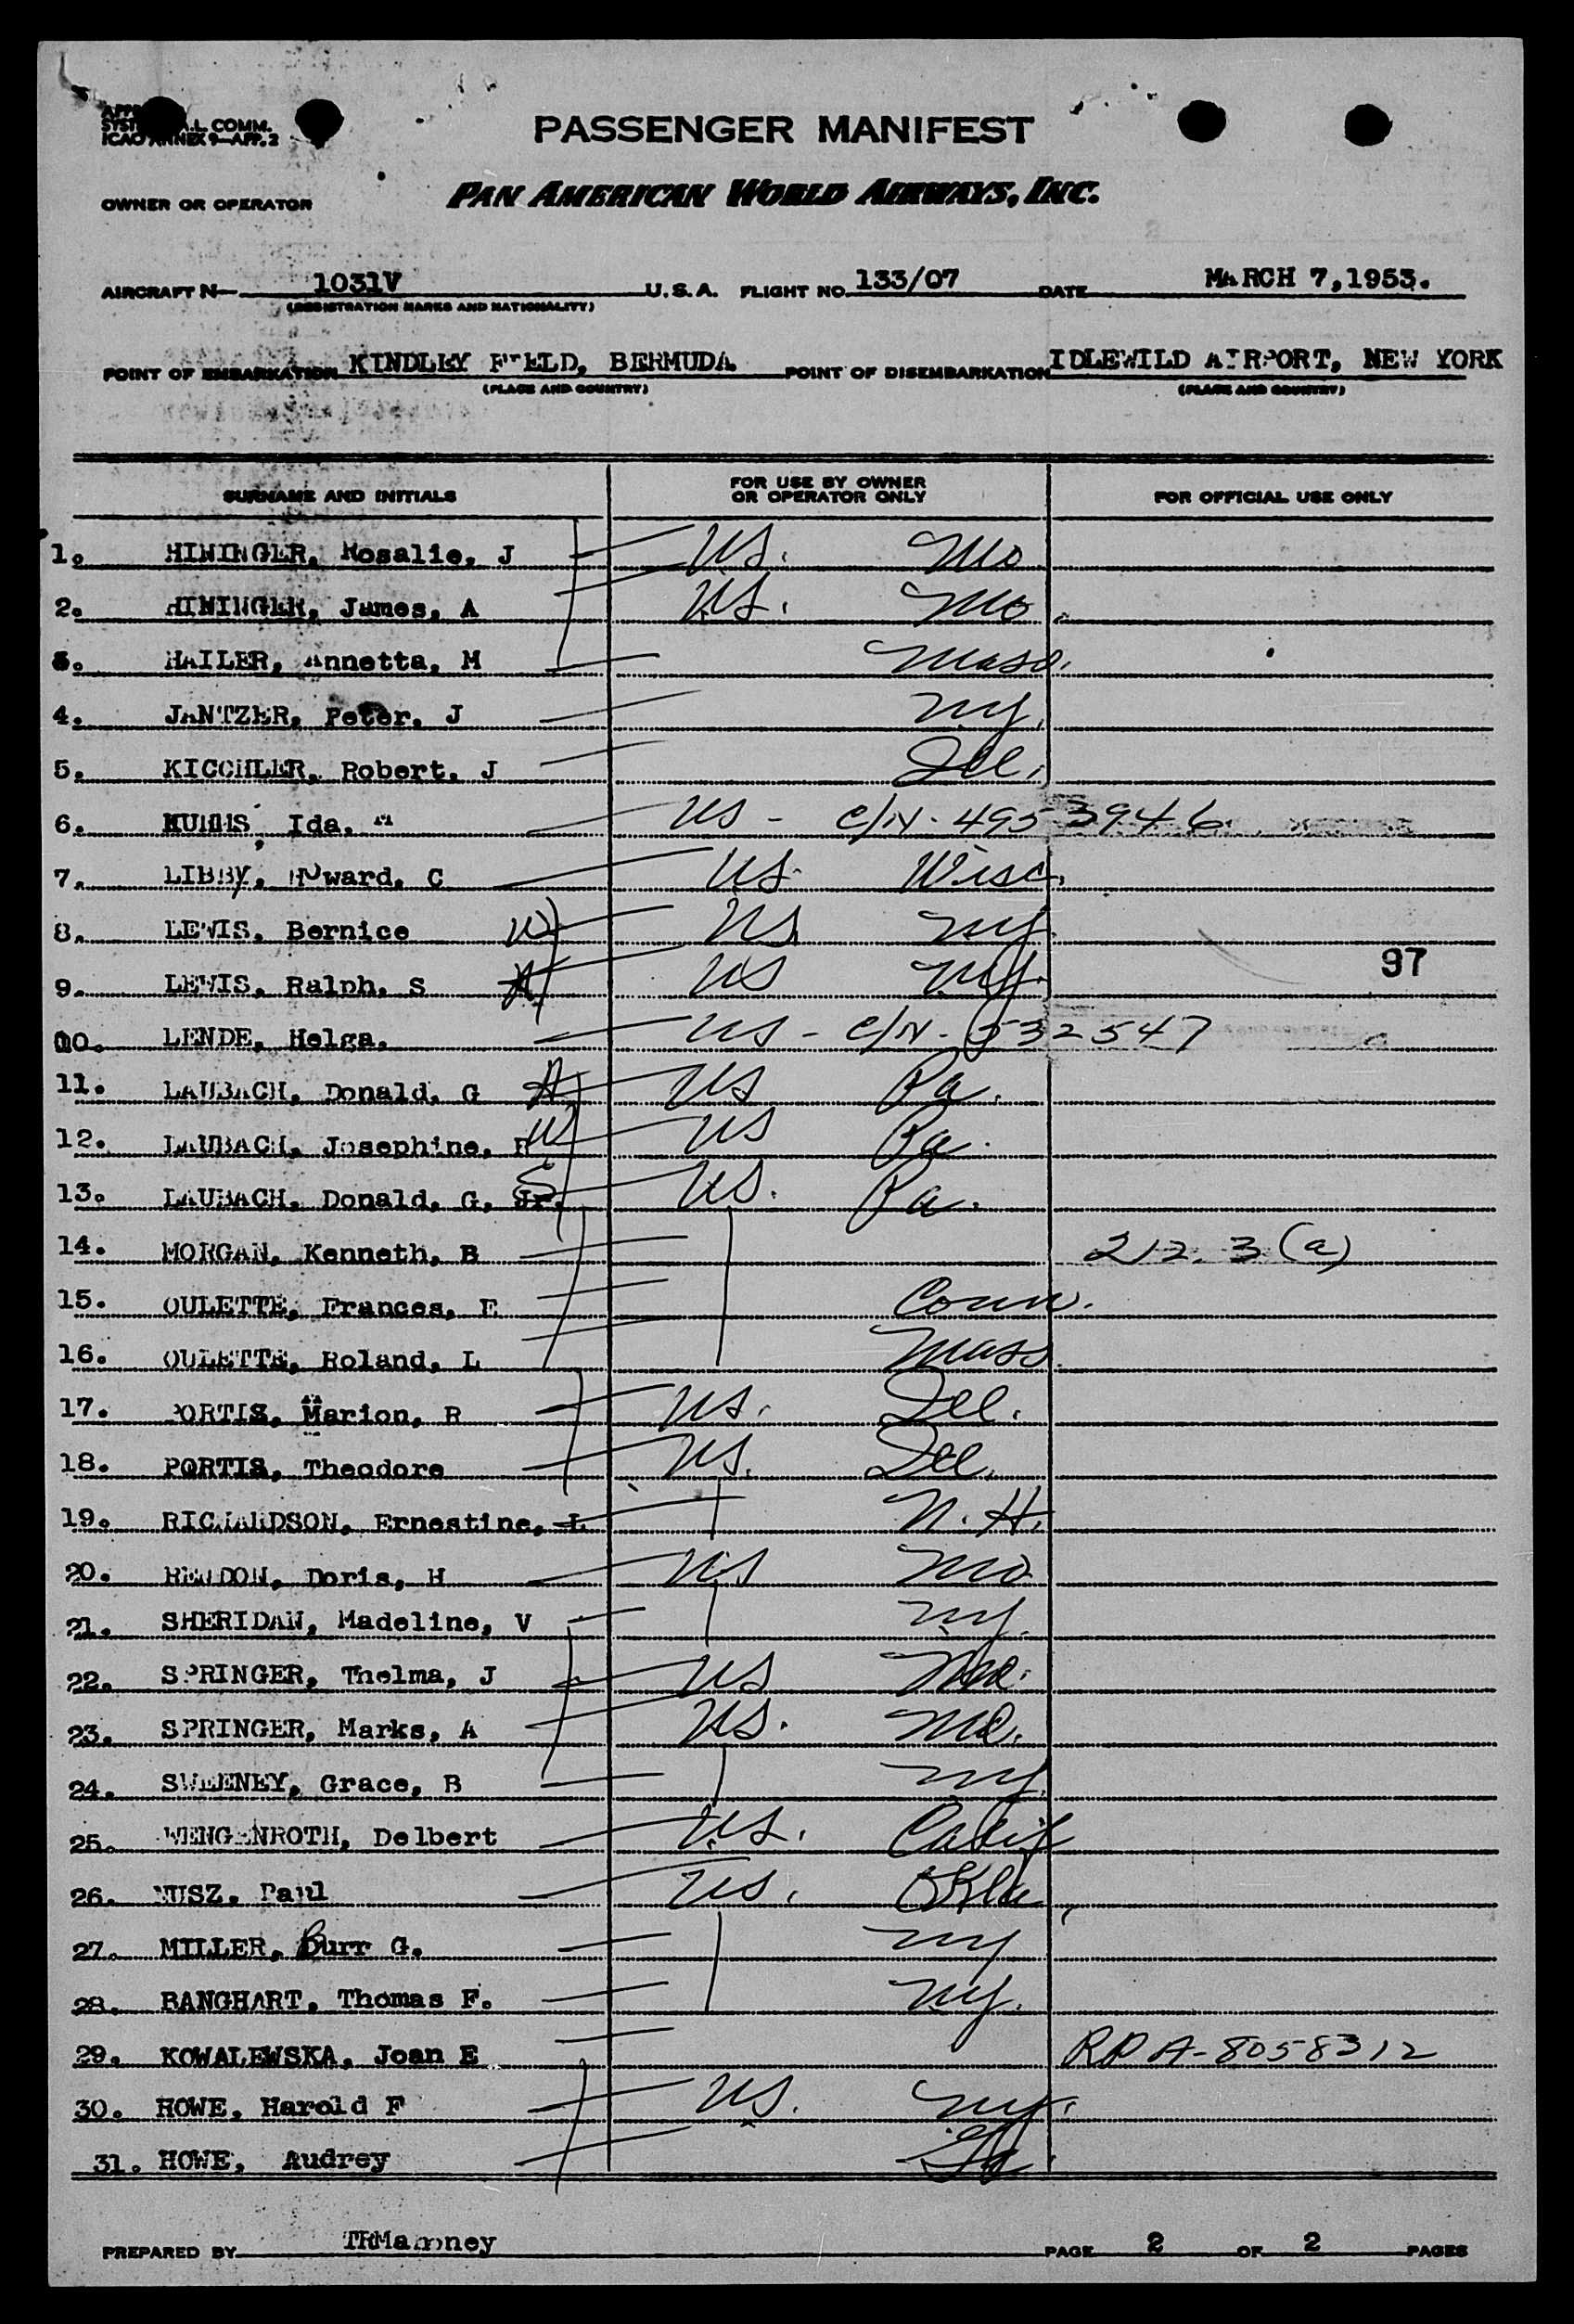 A.L. COMM.
ICAO ANNEX 9—APP. 2
PASSENGER MANIFEST
OWNER OR OPERATOR PAN AMERICAN WORLD AIRWAYS, INC.
AIRCRAFT N— 1031V U.S.A. FLIGHT NO. 133/07 DATE MARCH 7,1953.
(REGISTRATION MARKS AND NATIONALITY)
POINT OF EMBARKATION KINDLEY FIELD, BERMUDA POINT OF DISEMBARKATION IDLEWILD AIRPORT, NEW YORK
(PLACE AND COUNTRY) (PLACE AND COUNTRY)
SURNAME AND INITIALS FOR USE BY OWNER OR OPERATOR ONLY FOR OFFICIAL USE ONLY
1. HININGER, Rosalie, J US. Mo
2. HININGER, James, A US. Mo.
3. HAILER, Annetta, M Mass.
4. JANTZER, Peter, J NY.
5. Robert, J Ill.
6. Ida, US - C/N. 4953946
7. LIBBY, Howard, C US Wisc.
8. LEWIS, Bernice W US NY.
9. LEWIS, Ralph, S H US NY.
10. LENDE, Helga. US - C/N - 532547
11. LAUBACH, Donald, G H US Pa.
12. LAUBACH, Josephine, W US Pa.
13. LAUBACH, Donald, G, Jr. S US. Pa.
14. MORGAN, Kenneth, B 212.3 (a)
15. OULETTE, Frances, E Conn.
16. OULETTE, Roland, L Mass.
17. PORTIS, Marion, R US. Ill.
18. PORTIS, Theodore US. Ill.
19. RICHARDSON, Ernestine, L N.H.
20. Doris, H US Mo
21. SHERIDAN, Madeline, V NY.
22. SPRINGER, Thelma, J US
23. SPRINGER, Marks, A US. Md.
24. SWEENEY, Grace, B NY.
25. WENGENROTH, Delbert US. Calif
26. Paul US. Okla,
27. MILLER, Burr G. NY
28. BANGHART, Thomas F. NY.
97
29. KOWALEWSKA, Joan E RP A-8058312
30. HOWE, Harold F US. NY.
31. HOWE, Audrey Ga.
PREPARED BY TRMahoney PAGE 2 OF 2 PAGES